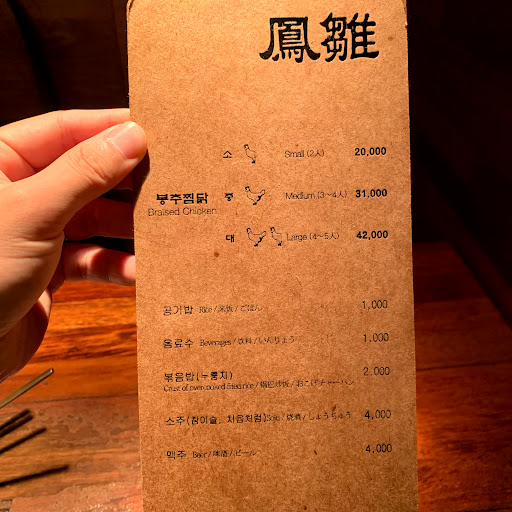 鳳雛
소 Small (2人) 20,000
봉추찜닭 중 Medium (3~4人) 31,000
Braised Chicken
대 Large (4~5人) 42,000
공기밥 Rice / 米饭 / ごはん 1,000
음료수 Beverages / 饮料 / いんりょう 1,000
볶음밥(누룽지) 2,000
Crust of oven cooked fried rice / 锅巴炒饭 / おこげチャーハン
소주(참이슬, 처음처럼) Soju / 烧酒 / しょうちゅう 4,000
맥주 Beer / 啤酒 / ビール 4,000